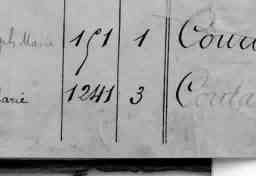 Marie 151 1 Cour
Marie 1241 3 Couta